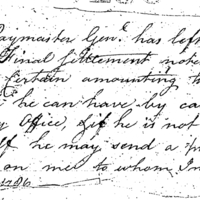 Paymaster Genl. has left
Final settlement notes
Certain amounting to
he can have by ca
Office, & if he is not
he may send a
on me to whom I
1796